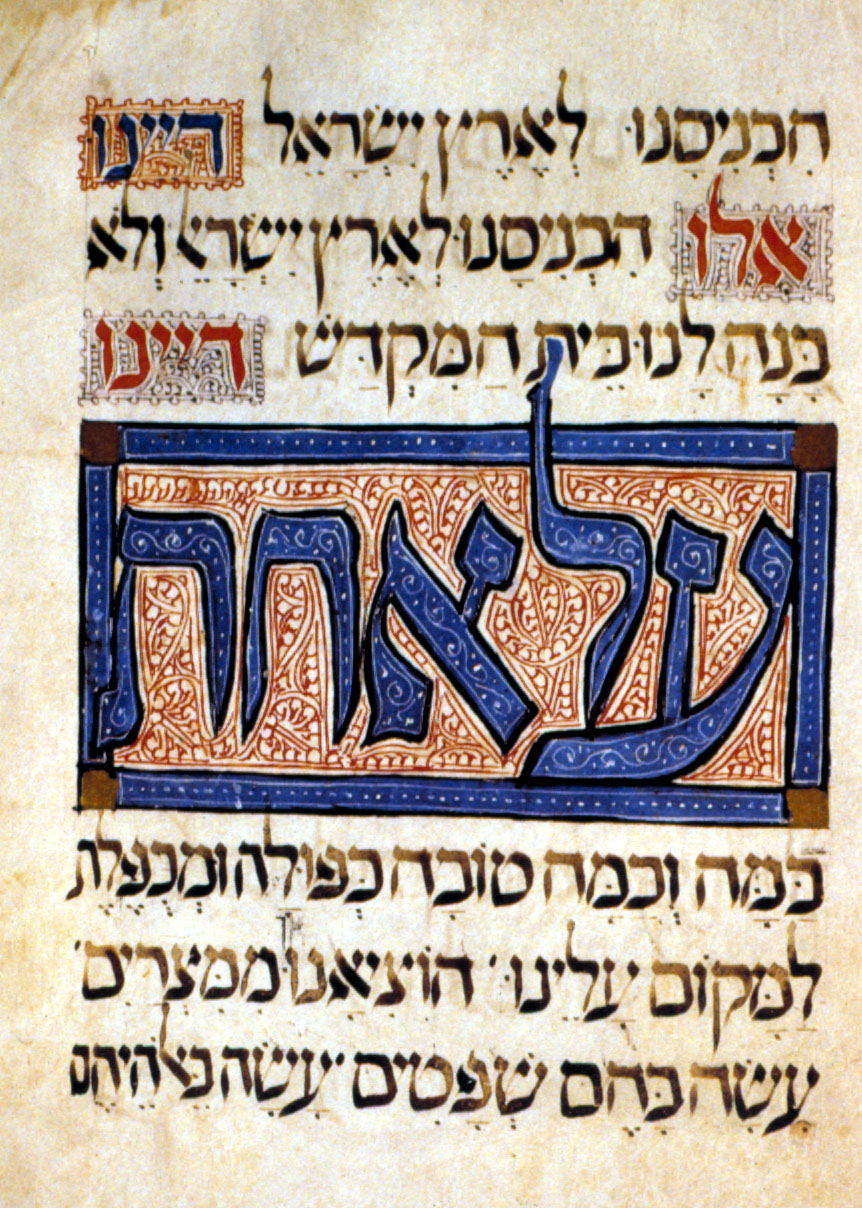 הִכְנִיסָנוּ לְאֶרֶץ יִשְׂרָאֵל דיינו
אלו הִכְנִיסָנוּ לְאֶרֶץ יִשְׂרָאֵל וְלֹא
בָּנָה לָנוּ בֵּית הַמִּקְדָּשׁ דיינו
על אחת
כַּמָּה וְכַמָּה טוֹבָה כְּפוּלָה וּמְכֻפֶּלֶת
לַמָּקוֹם עָלֵינוּ · הוֹצִיאָנוּ מִמִּצְרַיִם ·
עָשָׂה בָּהֶם שְׁפָטִים · עָשָׂה בֵאלֹהֵיהֶם